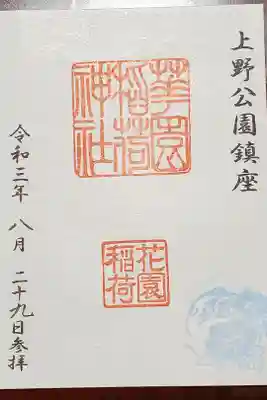 上野公園鎮座
華園
稲荷
神社
花園
稲荷
令和三年 八月 二十九日参拝